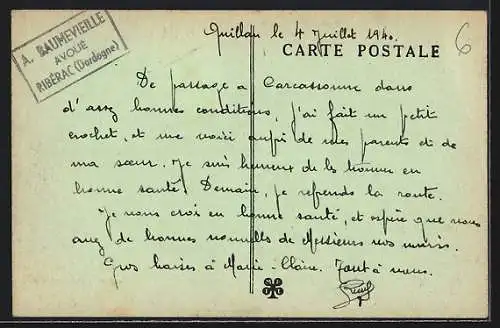 A. BAUMEVIEILLE
AVOUÉ
RIBÉRAC (Dordogne)
Quillan le 4 Juillet 1940.
6
CARTE POSTALE
De passage à Carcassonne dans
d'assez bonnes conditions, j'ai fait un petit
crochet, et me voici auprès de mes parents et de
ma sœur. Je suis heureux de les trouver en
bonne santé. Demain, je reprends la route.
Je vous crois en bonne santé, et espère que vous
avez de bonnes nouvelles de Messieurs vos maris.
Gros baisers à Marie-Claire. Tout à vous.